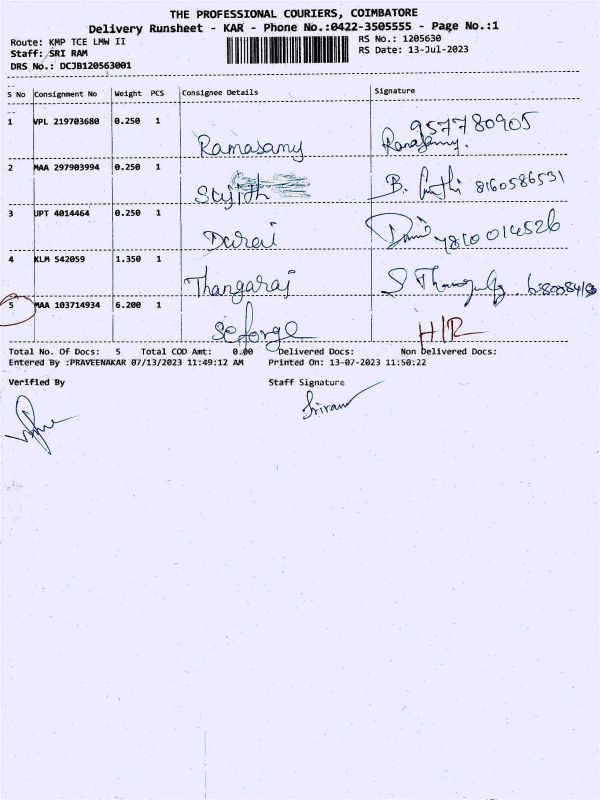 THE PROFESSIONAL COURIERS, COIMBATORE
Delivery Runsheet - KAR - Phone No.:0422-3505555 - Page No.:1
Route: KMP TCE LMW II
RS No.: 1205630
Staff: SRI RAM
RS Date: 13-Jul-2023
DRS No.: DCJB120563001
S No Consignment No Weight PCS Consignee Details Signature
1 VPL 219703680 0.250 1 Ramasamy 957780905
Ramasamy.
2 MAA 297903994 0.250 1 Sujith B. 8160586531
3 UPT 4014464 0.250 1 Durai 7810014526
4 KLM 542059 1.350 1 Thangaraj S
5 MAA 103714934 6.200 1 Seforge H/R
Total No. Of Docs: 5 Total COD Amt: 0.00 Delivered Docs: Non Delivered Docs:
Entered By :PRAVEENAKAR 07/13/2023 11:49:12 AM Printed On: 13-07-2023 11:50:22
Verified By Staff Signature
Sriram